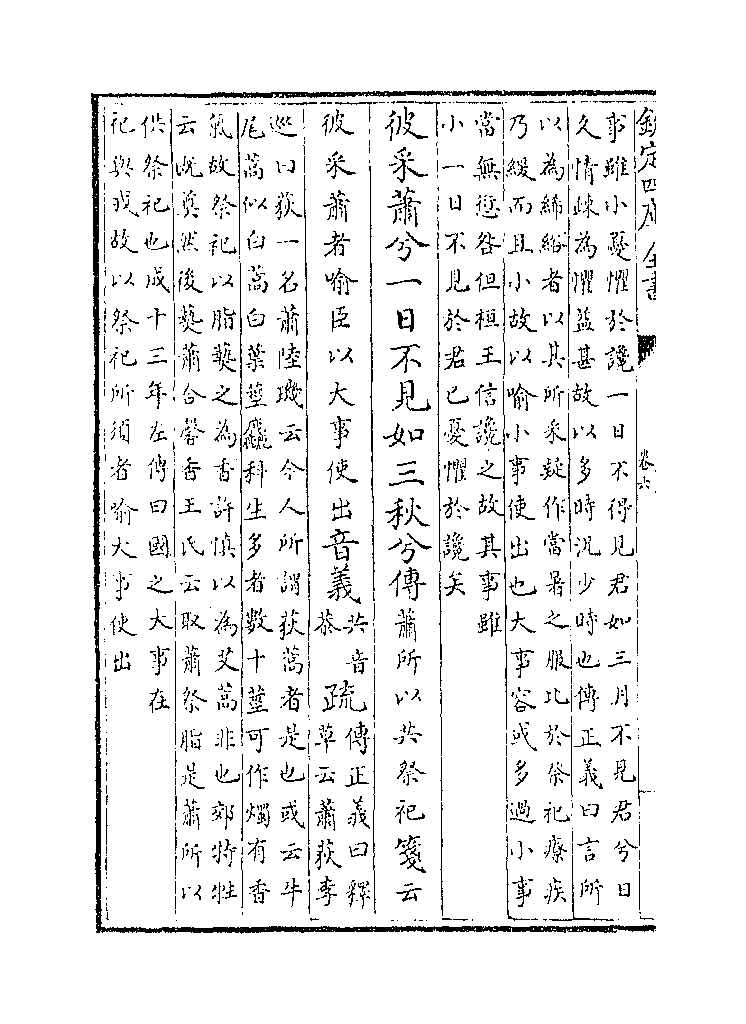 欽定四庫全書
卷六
事雖小憂懼於讒一日不得見君如三月不見君兮日
久情疎為懼益甚故以多時況少時也傳正義曰言所
以為絺綌者以其所采疑作當暑之服比於祭祀療疾
乃緩而且小故以喻小事使出也大事容或多過小事
當無愆咎但桓王信讒之故其事雖
小一日不見於君已憂懼於讒矣
彼采蕭兮一日不見如三秋兮傳蕭所以共祭祀箋云
彼采蕭者喻臣以大事使出音義
共音
恭
疏
傳正義曰釋
草云蕭荻李
巡曰荻一名蕭陸璣云今人所謂荻蒿者是也或云牛
尾蒿似白蒿白葉莖麤科生多者數十莖可作燭有香
氣故祭祀以脂爇之為香許慎以為艾蒿非也郊特牲
云既奠然後爇蕭合馨香王氏云取蕭祭脂是蕭所以
供祭祀也成十三年左傳曰國之大事在
祀與戎故以祭祀所須者喻大事使出